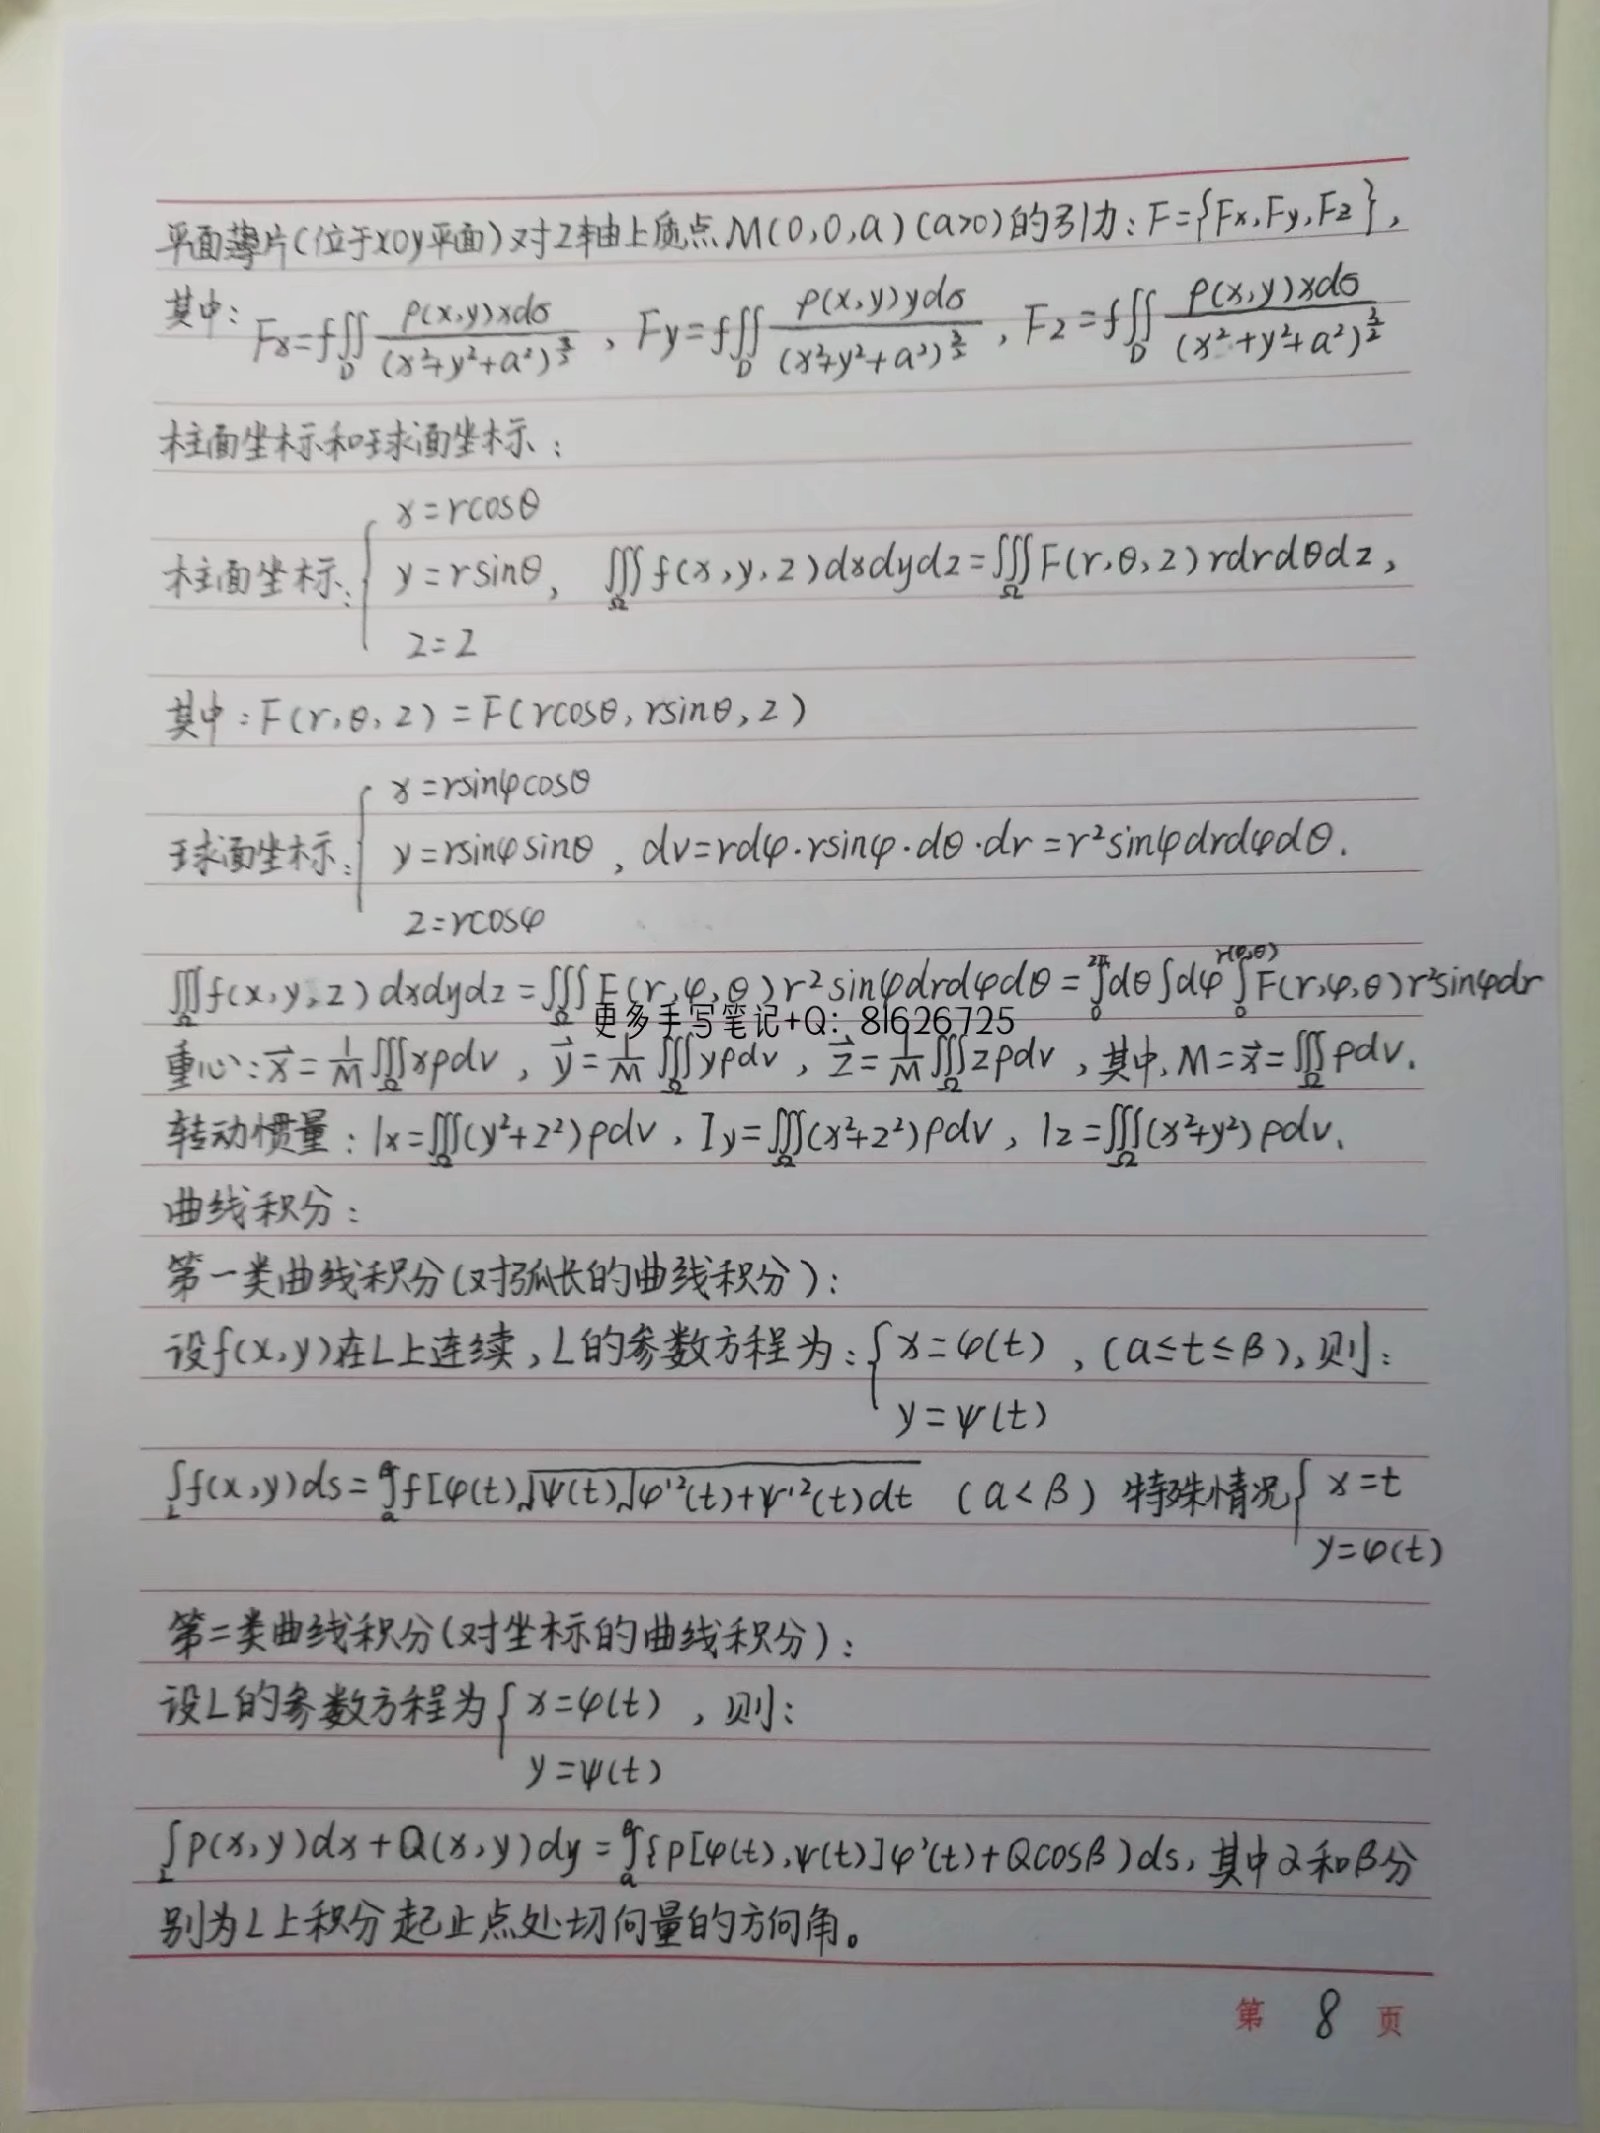 平面薄片(位于xOy平面)对z轴上质点M(0,0,a)(a>0)的引力:F={Fx,Fy,Fz},
其中: Fx=f∬_D ρ(x,y)xdσ/(x²+y²+a²)^(3/2), Fy=f∬_D ρ(x,y)ydσ/(x²+y²+a²)^(3/2), Fz=f∬_D ρ(x,y)xdσ/(x²+y²+a²)^(3/2)
柱面坐标和球面坐标:
x=rcosθ
柱面坐标:{ y=rsinθ, ∭_Ω f(x,y,z)dxdydz=∭_Ω F(r,θ,z)rdrdθdz,
z=z
其中:F(r,θ,z)=F(rcosθ,rsinθ,z)
x=rsinφcosθ
球面坐标:{ y=rsinφsinθ, dv=rdφ·rsinφ·dθ·dr=r²sinφdrdφdθ.
z=rcosφ
∭_Ω f(x,y,z)dxdydz=∭_Ω F(r,φ,θ)r²sinφdrdφdθ=∫_0^2π dθ∫dφ∫_0^r(φ,θ) F(r,φ,θ)r²sinφdr
更多手写笔记+Q: 81626725
重心:x⃗=1/M∭_Ω xρdv, y⃗=1/M∭_Ω yρdv, z⃗=1/M∭_Ω zρdv, 其中,M=x⃗=∭_Ω ρdv.
转动惯量: Ix=∭_Ω(y²+z²)ρdv, Iy=∭_Ω(x²+z²)ρdv, Iz=∭_Ω(x²+y²)ρdv.
曲线积分:
第一类曲线积分(对弧长的曲线积分):
设f(x,y)在L上连续,L的参数方程为:{ x=φ(t), (a≤t≤β),则:
y=ψ(t)
∫_L f(x,y)ds=∫_a^β f[φ(t),√ψ(t)√φ'²(t)+ψ'²(t)dt (a<β) 特殊情况{ x=t
y=φ(t)
第二类曲线积分(对坐标的曲线积分):
设L的参数方程为{ x=φ(t), 则:
y=ψ(t)
∫_L P(x,y)dx+Q(x,y)dy=∫_a^β{P[φ(t),ψ(t)]φ'(t)+Qcosβ)ds,其中α和β分
别为L上积分起止点处切向量的方向角。
第 8 页